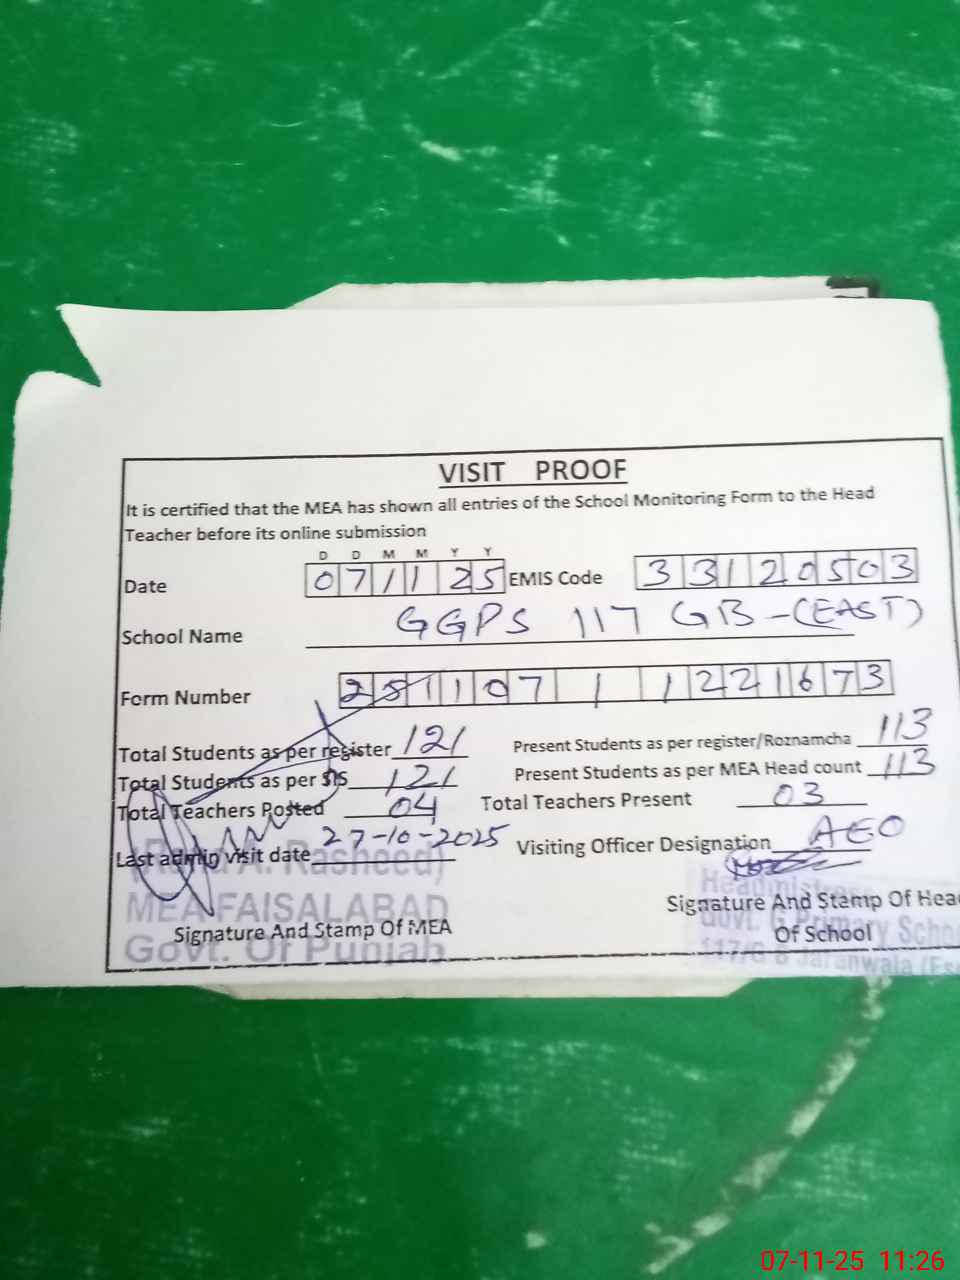 VISIT PROOF
It is certified that the MEA has shown all entries of the School Monitoring Form to the Head
Teacher before its online submission
D D M M Y Y
Date 071125 EMIS Code 33120503
School Name GGPS 117 GB-(EAST)
Form Number 251107 1 1221673
Total Students as per register 121 Present Students as per register/Roznamcha 113
Total Students as per SIS 121 Present Students as per MEA Head count 113
Total Teachers Posted 04 Total Teachers Present 03
Last admin visit date 27-10-2025 Visiting Officer Designation AEO
A. Rasheed)
MEA FAISALABAD
Govt. Of Punjab
Signature And Stamp Of MEA
Signature And Stamp Of Head
Of School
Headmistress
Govt. G Primary Scho
117/G B Jaranwala
07-11-25 11:26